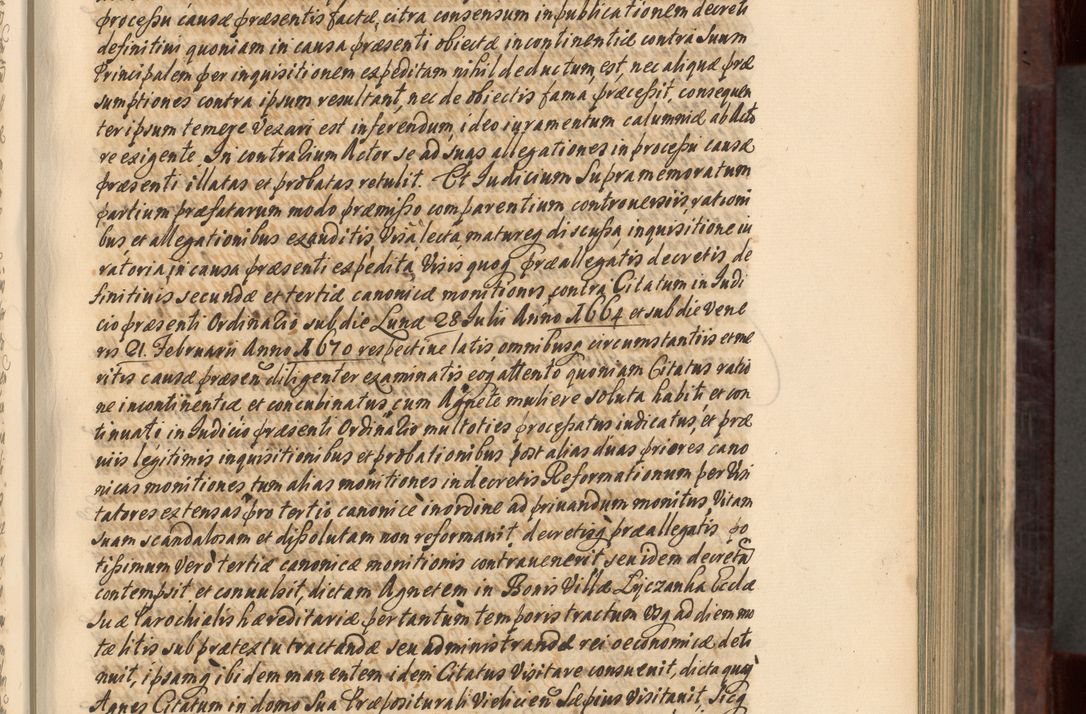 processu causæ præsentis factæ, citra consensum in publicationem decreti
definitivi quoniam in causa præsenti obiectæ incontinentiæ contra Suum
Principalem per inquisitionem expeditam nihil deductum est, nec aliquæ præ
sumptiones contra ipsum resultant, nec de obiectis fama præcessit, consequen
ter ipsum temere vexari est inferendum, ideo iuramentum calumniæ ab Acto
re exigente. In contrarium Actor se ad suas allegationes in processu causæ
præsenti illatas et probatas retulit. Et Iudicium Supramemoratum
partium præfatarum modo præmisso comparentium controversiis, rationi
bus et allegationibus exauditis, Visa lecta matureq discussa inquisitione iu
ratoria in causa præsenti expedita, Visis quoq præallegatis decretis de
finitivis secundæ et tertiæ canonicæ monitionis contra Citatum in Iudi
cio præsenti Ordinario sub die Lunæ 28 Iulii Anno 1664 et sub die Vene
ris 21. Februarii Anno 1670 respective latis, omnibusq circumstantiis et me
ritis causæ præsen diligenter examinatis eoq attento quoniam Citatus ratio
ne incontinentiæ et concubinatus cum Agnete muliere soluta habiti et con
tinuati in Iudicio præsenti Ordinario multoties processatus iudicatus, et præ
viis legitimis inquisitionibus et probationibus post alias duas priores cano
nicas monitiones tum alias monitiones in decretis Reformationum per Visi
tatores extensas pro tertio canonice in ordine ad privandum monitus Vitam
suam scandalosam et dissolutam non reformavit, decretisq præallegatis, po
tissimum vero tertiæ canonicæ monitionis contravenerit, seu idem decretu
contempsit et convulsit, dictam Agnetem in Bonis Villæ Lyczanka Ecclæ
suæ Parochialis hæreditariæ per tantum temporis tractum usq ad diem mo
tæ litis sub prætextu tractandæ seu administrandæ rei oeconomicæ deti
nuit, ipsamq ibidem manentem idem Citatus Visitare consuevit, dictaquæ
Agnes Citatum in domo Sua Præpositurali Vieliciен Sæpius Visitavit, Sicq